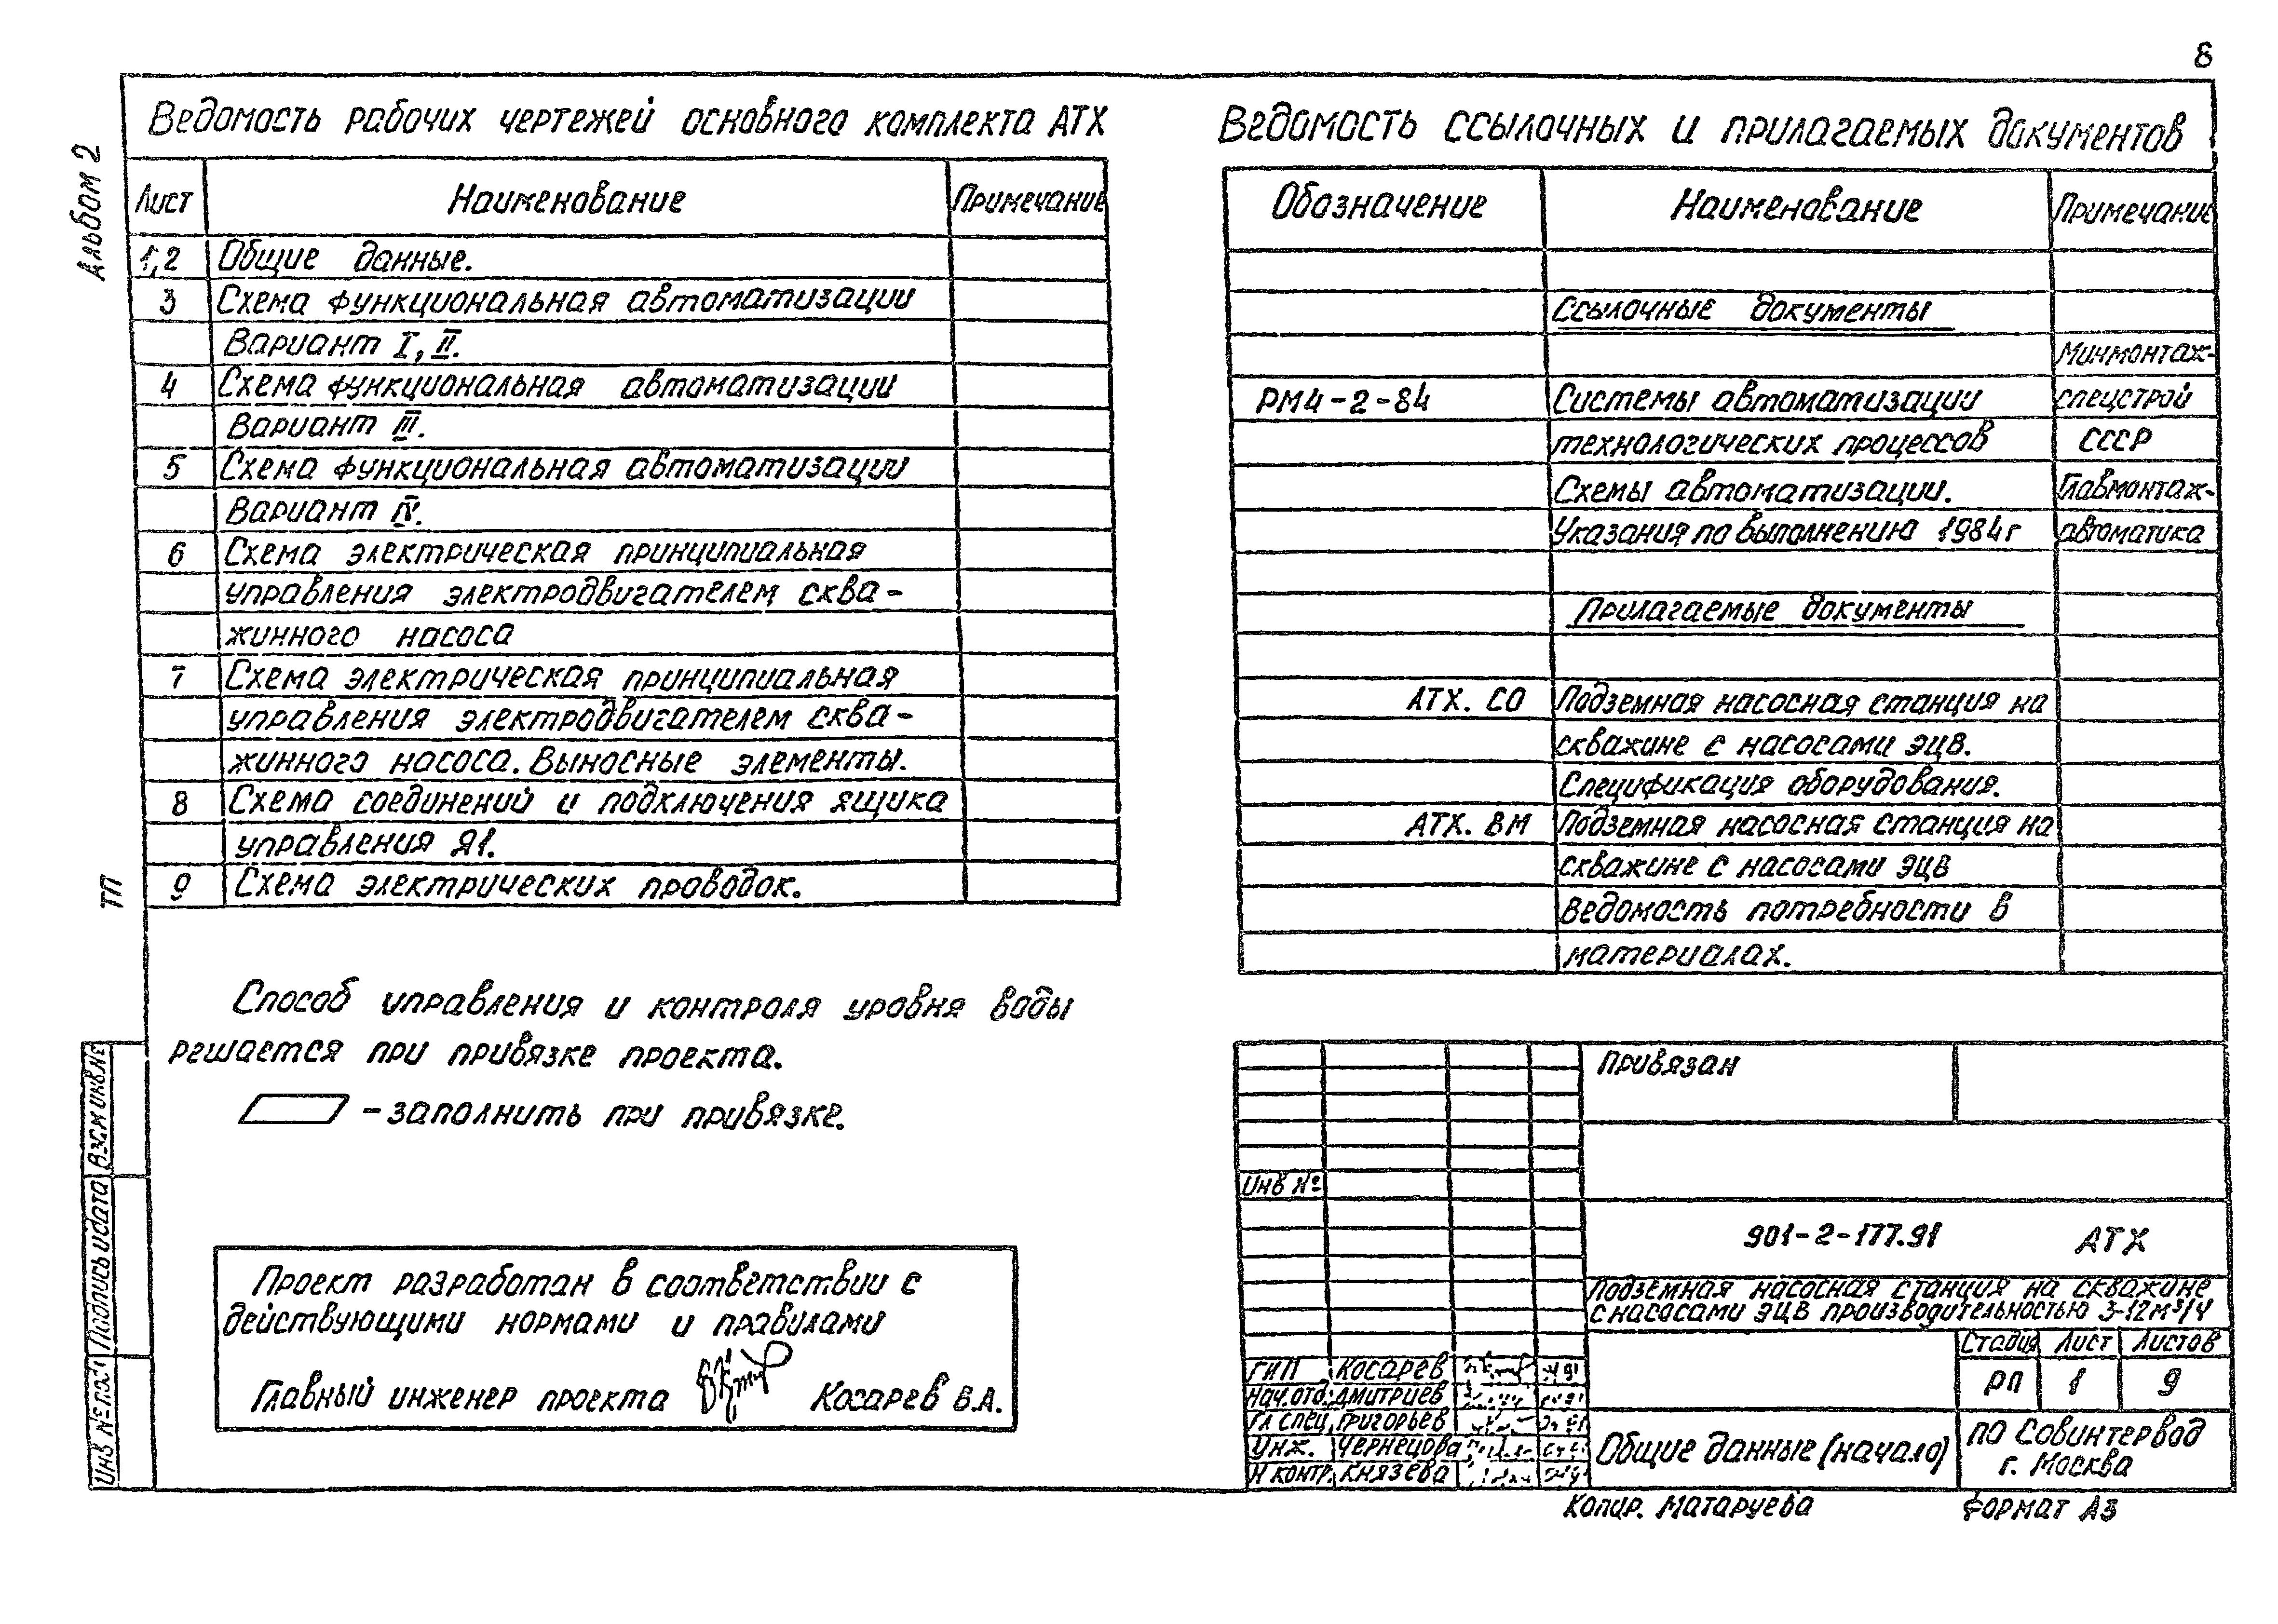 8
Альбом 2
ТП
Ведомость рабочих чертежей основного комплекта АТХ
Лист Наименование Примечание
1,2 Общие данные.
3 Схема функциональная автоматизации
Вариант I, II.
4 Схема функциональная автоматизации
Вариант III.
5 Схема функциональная автоматизации
Вариант IV.
6 Схема электрическая принципиальная
управления электродвигателем сква-
жинного насоса
7 Схема электрическая принципиальная
управления электродвигателем сква-
жинного насоса. Выносные элементы.
8 Схема соединений и подключения ящика
управления Я1.
9 Схема электрических проводок.
Способ управления и контроля уровня воды
решается при привязке проекта.
- заполнить при привязке.
Проект разработан в соответствии с
действующими нормами и правилами
Главный инженер проекта Косарев В.А.
Ведомость ссылочных и прилагаемых документов
Обозначение Наименование Примечание
Ссылочные документы
Минмонтаж-
РМ4-2-84 Системы автоматизации спецстрой
технологических процессов СССР
Схемы автоматизации. Главмонтаж-
Указания по выполнению 1984г автоматика
Прилагаемые документы
АТХ. СО Подземная насосная станция на
скважине с насосами ЭЦВ.
Спецификация оборудования.
АТХ. ВМ Подземная насосная станция на
скважине с насосами ЭЦВ
Ведомость потребности в
материалах.
Привязан
Инв №
901-2-177.91 АТХ
Подземная насосная станция на скважине
с насосами ЭЦВ производительностью 3-12м³/ч
Стадия Лист Листов
РП 1 9
ГИП Косарев
Нач.отд. Дмитриев
Гл спец. Григорьев
Инж. Чернецова
Н контр. Князева
Общие данные (начало)
ПО Совинтервод
г. Москва
Копир. Матаруева Формат А3
Взам инв.№
Подпись и дата
Инв № подл